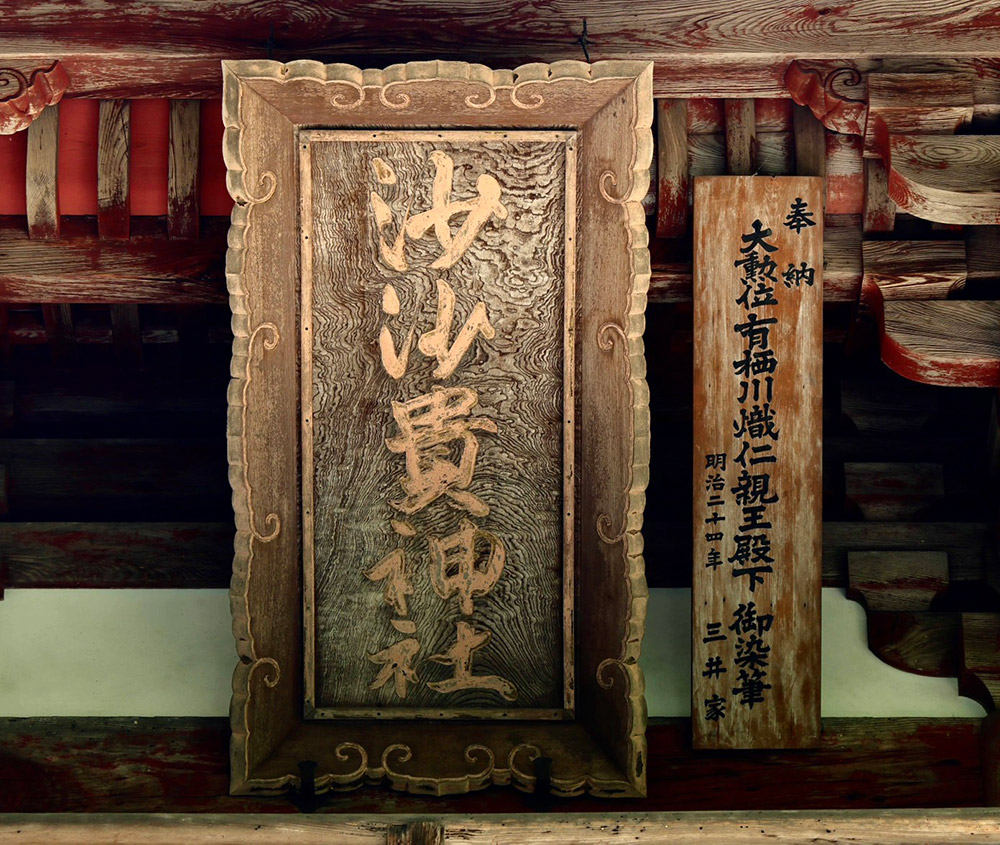 沙沙貴神社
奉納
大勲位有栖川熾仁親王殿下 御染筆
明治二十四年 三井家